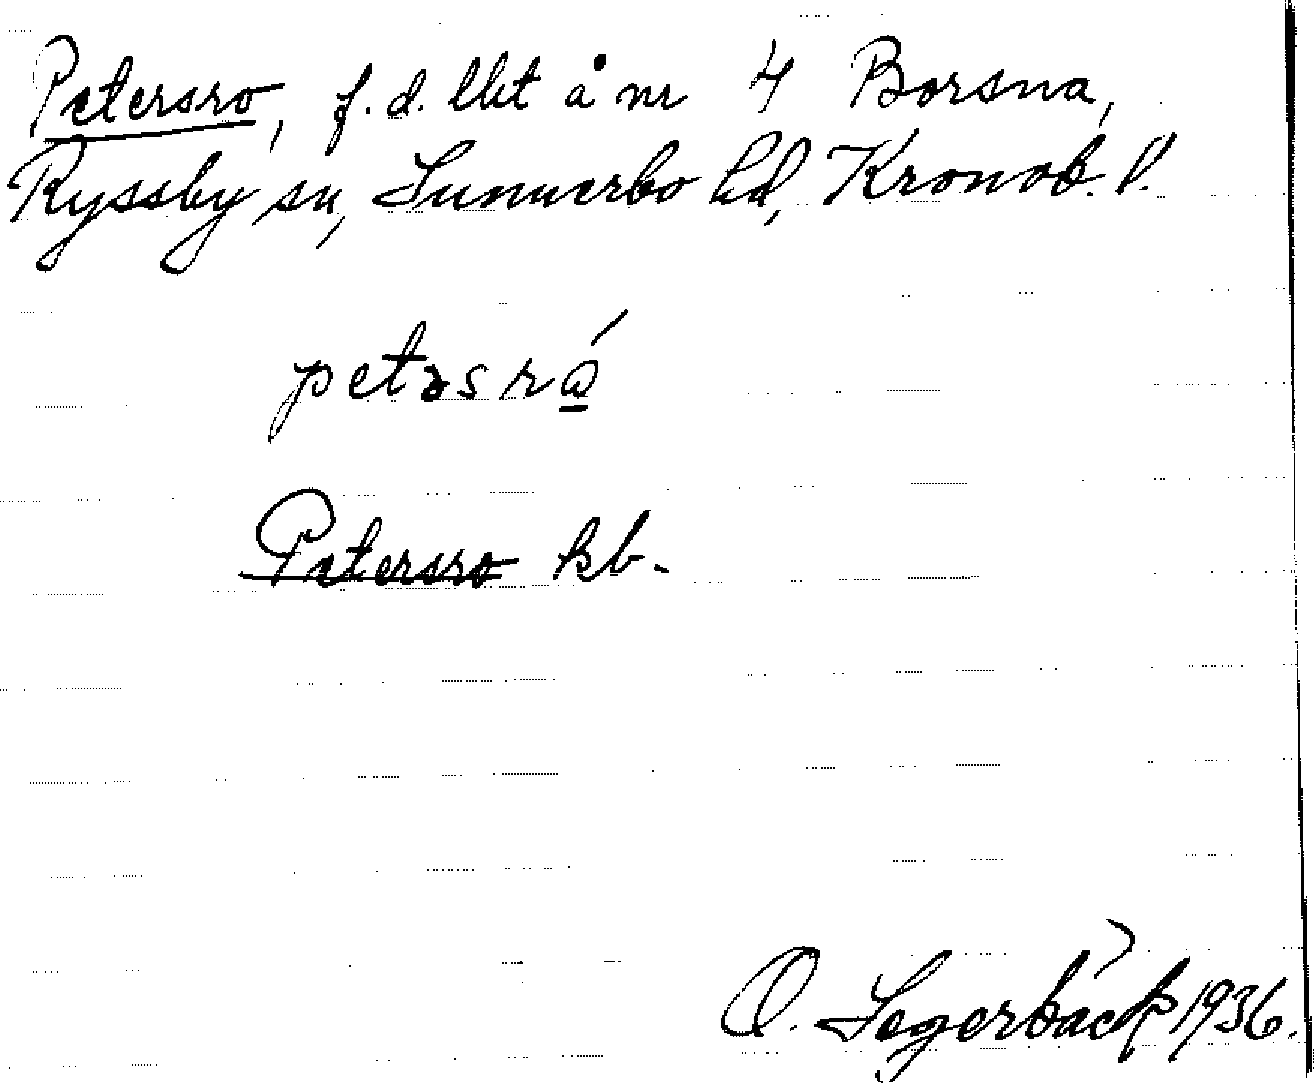 Petersro, f.d. lht å nr 4 Borsna,
Ryssby sn, Sunnerbo hd, Kronob. l.
petəsró̱
Petersro kb.
O. Segerbäck 1936.